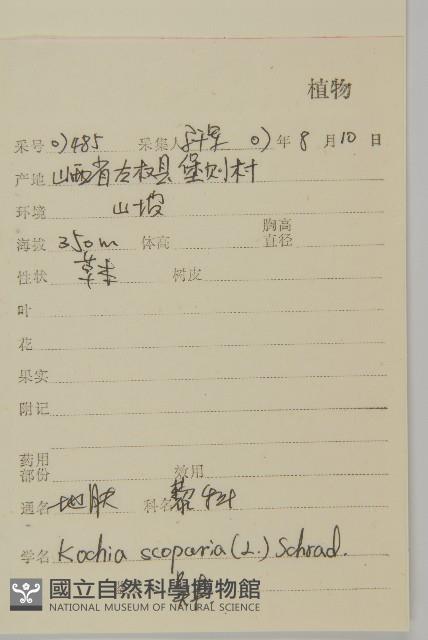 植物
采号 01485 采集人 01年 8月 10日
产地 山西省左权县堡则村
环境 山坡
海拔 350m 体高 胸高直径
性状 草本 树皮
叶
花
果实
附记
药用部份 效用
通名 地肤 科名 藜科
学名 Kochia scoparia (L.) Schrad.
國立自然科學博物館
NATIONAL MUSEUM OF NATURAL SCIENCE